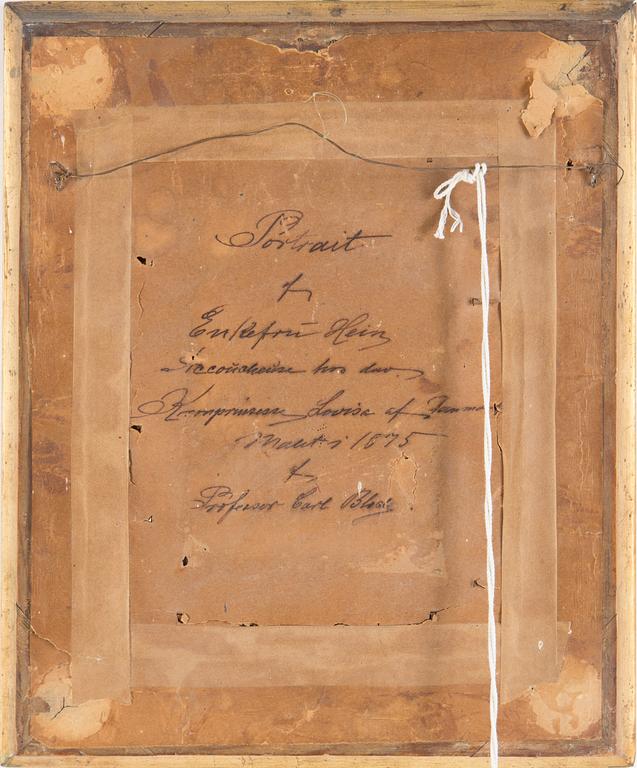 Portrait
af
Enkefru Hein
Accoucheuse hos dav.
Kronprinsesse Lovisa af Danmark
Malet i 1875
af
Professor Carl Bloch